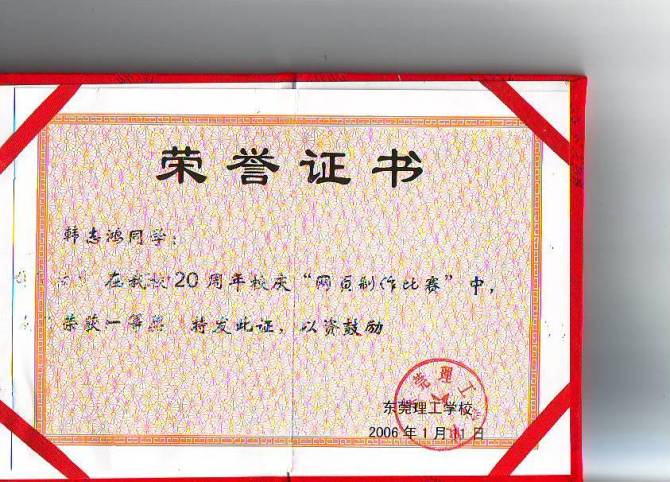 荣誉证书
韩志鸿同学：
在我校20周年校庆“网页制作比赛”中，
荣获一等奖 特发此证，以资鼓励
东莞理工学校
2006年1月11日